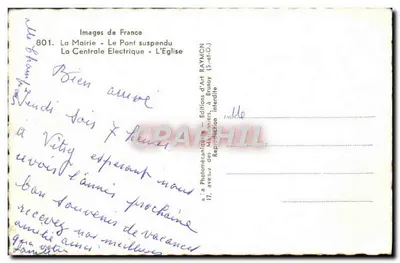 Images de France
801. La Mairie - Le Pont suspendu
La Centrale Electrique - L'Eglise
Bien arrivé
Jeudi soir 7 heures
à Vitry esperant nous
avoir l'année prochaine
bon souvenir de vacances
recevez nos meilleures
amitié ainsi
Photomécaniques - Editions d'Art RAYMON
117, avenue des à Brunoy (S.-et-O.)
Reproduction interdite
Mle
CPARAMA